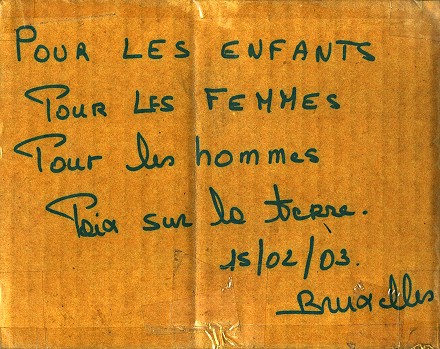 POUR LES ENFANTS
POUR LES FEMMES
Pour les hommes
Paix sur la terre.
15/02/03.
Bruxelles